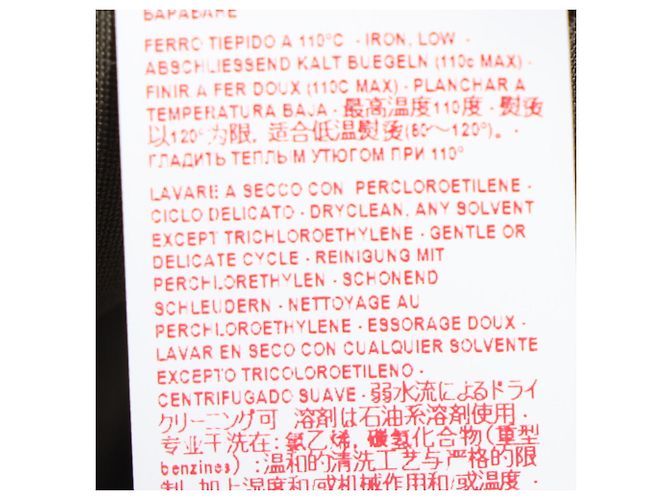 БАРАБАНЕ
FERRO TIEPIDO A 110°C - IRON, LOW -
ABSCHLIESSEND KALT BUEGELN (110c MAX) -
FINIR A FER DOUX (110C MAX) - PLANCHAR A
TEMPERATURA BAJA - 最高温度110度 - 熨烫
以120°为限, 适合低温熨烫(80～120°)。-
ГЛАДИТЬ ТЕПЛЫМ УТЮГОМ ПРИ 110°
LAVARE A SECCO CON PERCLOROETILENE -
CICLO DELICATO - DRYCLEAN, ANY SOLVENT
EXCEPT TRICHLOROETHYLENE - GENTLE OR
DELICATE CYCLE - REINIGUNG MIT
PERCHLORETHYLEN - SCHONEND
SCHLEUDERN - NETTOYAGE AU
PERCHLOROETHYLENE - ESSORAGE DOUX -
LAVAR EN SECO CON CUALQUIER SOLVENTE
EXCEPTO TRICOLOROETILENO -
CENTRIFUGADO SUAVE - 弱水流によるドライ
クリーニング可 溶剤は石油系溶剤使用 -
专业干洗在: 氯乙烯, 碳氢化合物(重型
benzines) :温和的清洗工艺与严格的限
制, 加上湿度和/或机械作用和/或温度 -